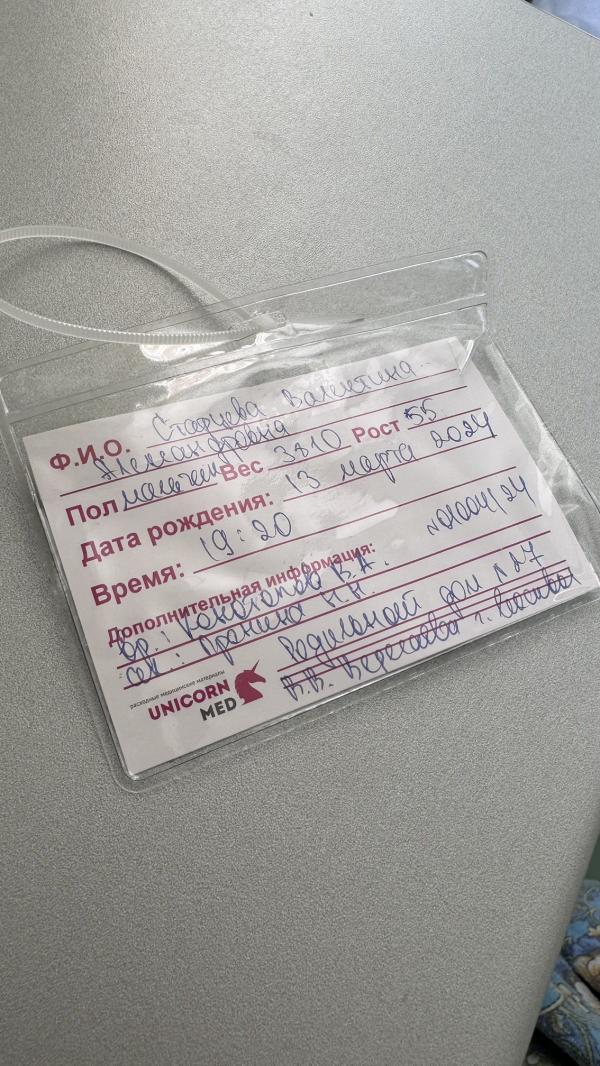 Ф.И.О. Валентина
Александровна
Пол мальчик Вес 3810 Рост 55
Дата рождения: 13 марта 2024
Время: 19:20
Дополнительная информация: №01004/24
вр.: В.А.
Н.Н.
Родильный дом №27
г.
расходные медицинские материалы
UNICORN
MED